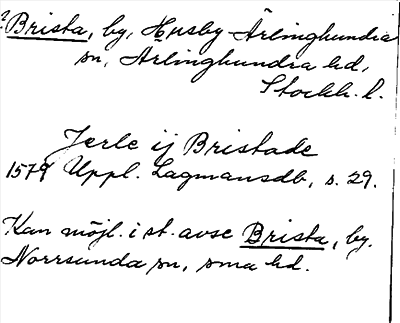 ? Brista, by, Husby Ärlinghundra
sn, Ärlinghundra hd,
Stockh. l.
Jerle ij Bristade
1579 Uppl. Lagmansdb, s. 29.
Kan möjl. i st. avse Brista, by.
Norrsunda sn, sma hd.